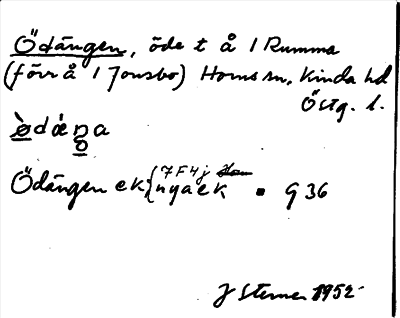 Ödängen, öde t å 1 Rumma
(förr å 1 Jonsbo) Horns sn, Kinda hd
Östg. l.
ø̀dáŋa
Ödängen ek {nya ek 7F4j • G 36
J Sterner 1952